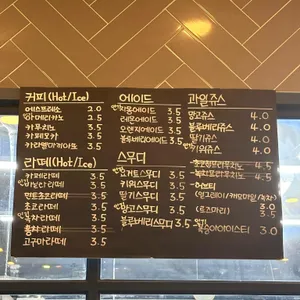 커피(Hot/Ice)
에스프레소 2.0
아메리카노 2.0
카푸치노 3.5
카페모카 3.5
카라멜마끼아또 3.5
라떼(Hot/Ice)
카페라떼 3.5
바닐라라떼 3.5
민트초코라떼 3.5
초코라떼 3.5
녹차라떼 3.5
홍차라떼 3.5
고구마라떼 3.5
에이드
자몽에이드 3.5
레몬에이드 3.5
오렌지에이드 3.5
블루베리에이드 3.5
스무디
요거트스무디 3.5
키위스무디 3.5
딸기스무디 3.5
망고스무디 3.5
블루베리스무디 3.5
과일쥬스
망고쥬스 4.0
블루베리쥬스 4.0
딸기쥬스 4.0
키위쥬스 4.0
3.5
녹차프라푸치노 3.5
티
(얼그레이/캐모마일/녹차)
(로즈마리) 3.5
복숭아아이스티 3.0